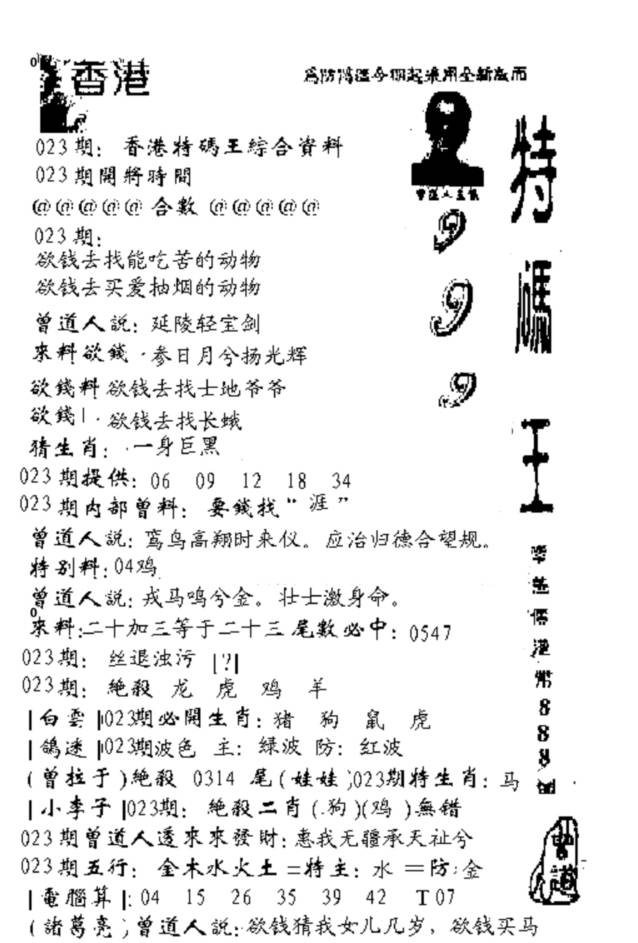 香港
為防鴻溫今期起採用全新版面
特碼王
曾道人主儀
999
023期: 香港特碼王綜合資料
023期開將時間
@@@@@ 合數 @@@@@
023期:
欲钱去找能吃苦的动物
欲钱去买爱抽烟的动物
曾道人説: 延陵轻宝剑
來料欲錢·参日月兮扬光辉
欲錢料欲钱去找士地爷爷
欲錢|·欲钱去找长蛾
猜生肖: ·一身巨黑
023期提供: 06 09 12 18 34
023期内部曾料: 要錢找“涯”
曾道人説: 鸾鸟高翔时来仪。应治归德合望规。
特别料: 04鸡
曾道人説: 戎马鸣兮金。壮士激身命。
來料:二十加三等于二十三尾數必中: 0547
023期: 丝退浊污 |?|
023期: 絶殺 龙 虎 鸡 羊
|白雲|023期必開生肖: 猪 狗 鼠 虎
|鴿迷|023期波色 主: 绿波 防: 红波
(曾拉于)絶殺 0314 尾(娃娃)023期特生肖: 马
|小李子|023期: 絶殺二肖(.狗)(鸡)無错
023期曾道人透來來發財: 惠我无疆承天祉兮
023期五行: 金木水火土=特主: 水 =防: 金
|電腦算|: 04 15 26 35 39 42 T07
(諸葛亮)曾道人説: 欲钱猜我女儿几岁, 欲钱买马
888
曾道